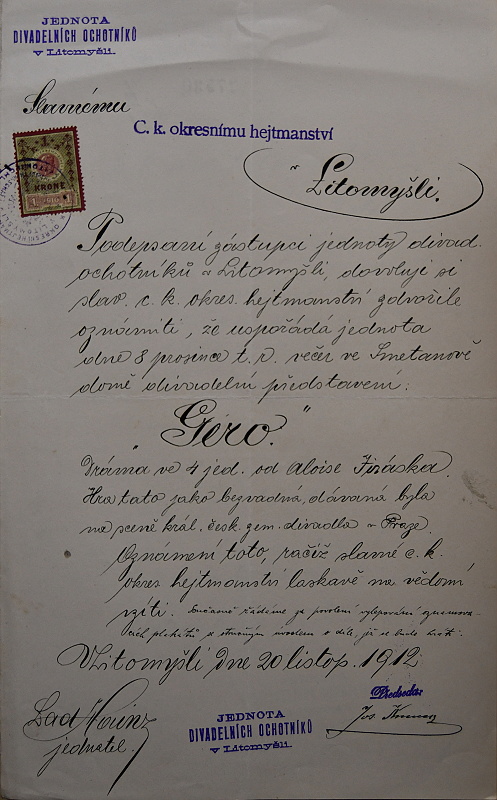 JEDNOTA
DIVADELNÍCH OCHOTNÍKŮ
v Litomyšli.
Slavnému
C. k. okresnímu hejtmanství
v
Litomyšli.
1
KRONE
Podepsaní zástupci jednoty divad.
ochotníků v Litomyšli, dovolují si
slav. c. k. okres. hejtmanství zdvořile
oznámiti, že uspořádá jednota
dne 8 prosince t. r. večer ve Smetanově
domě divadelní představení:
„Géro."
Dráma ve 4 jed. od Aloise Jiráska.
Hra tato jako bezvadná, dávaná byla
na scéně král. česk. zem. divadla v Praze.
Oznámení toto, račiž slavné c. k.
okres. hejtmanství laskavě na vědomí
vzíti. Současně žádáme za povolení vylepování oznamova-
cích plakátů s stručným úvodem o díle, jež se bude hráti.
V Litomyšli dne 20 listop. 1912.
Předseda:
Lad.
Jos.
jednatel.
JEDNOTA
DIVADELNÍCH OCHOTNÍKŮ
v Litomyšli.